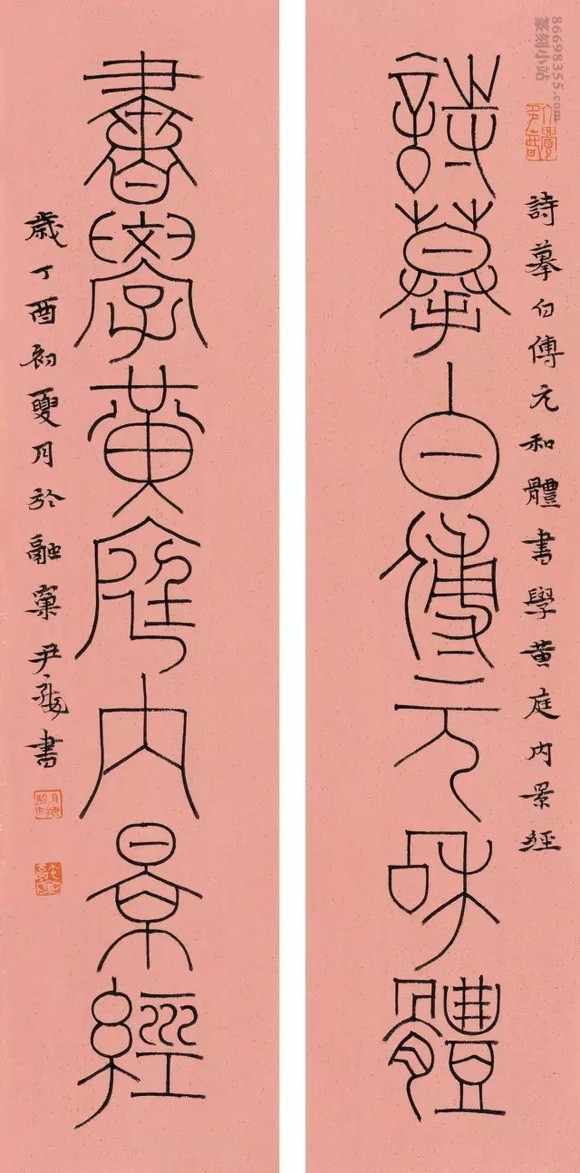 詩摹白傅元和體
詩摹白傅元和體書學黄庭内景經
書學黄庭内景經
歲丁酉初夏月於融窠尹海書
86698355.com
篆刻小站